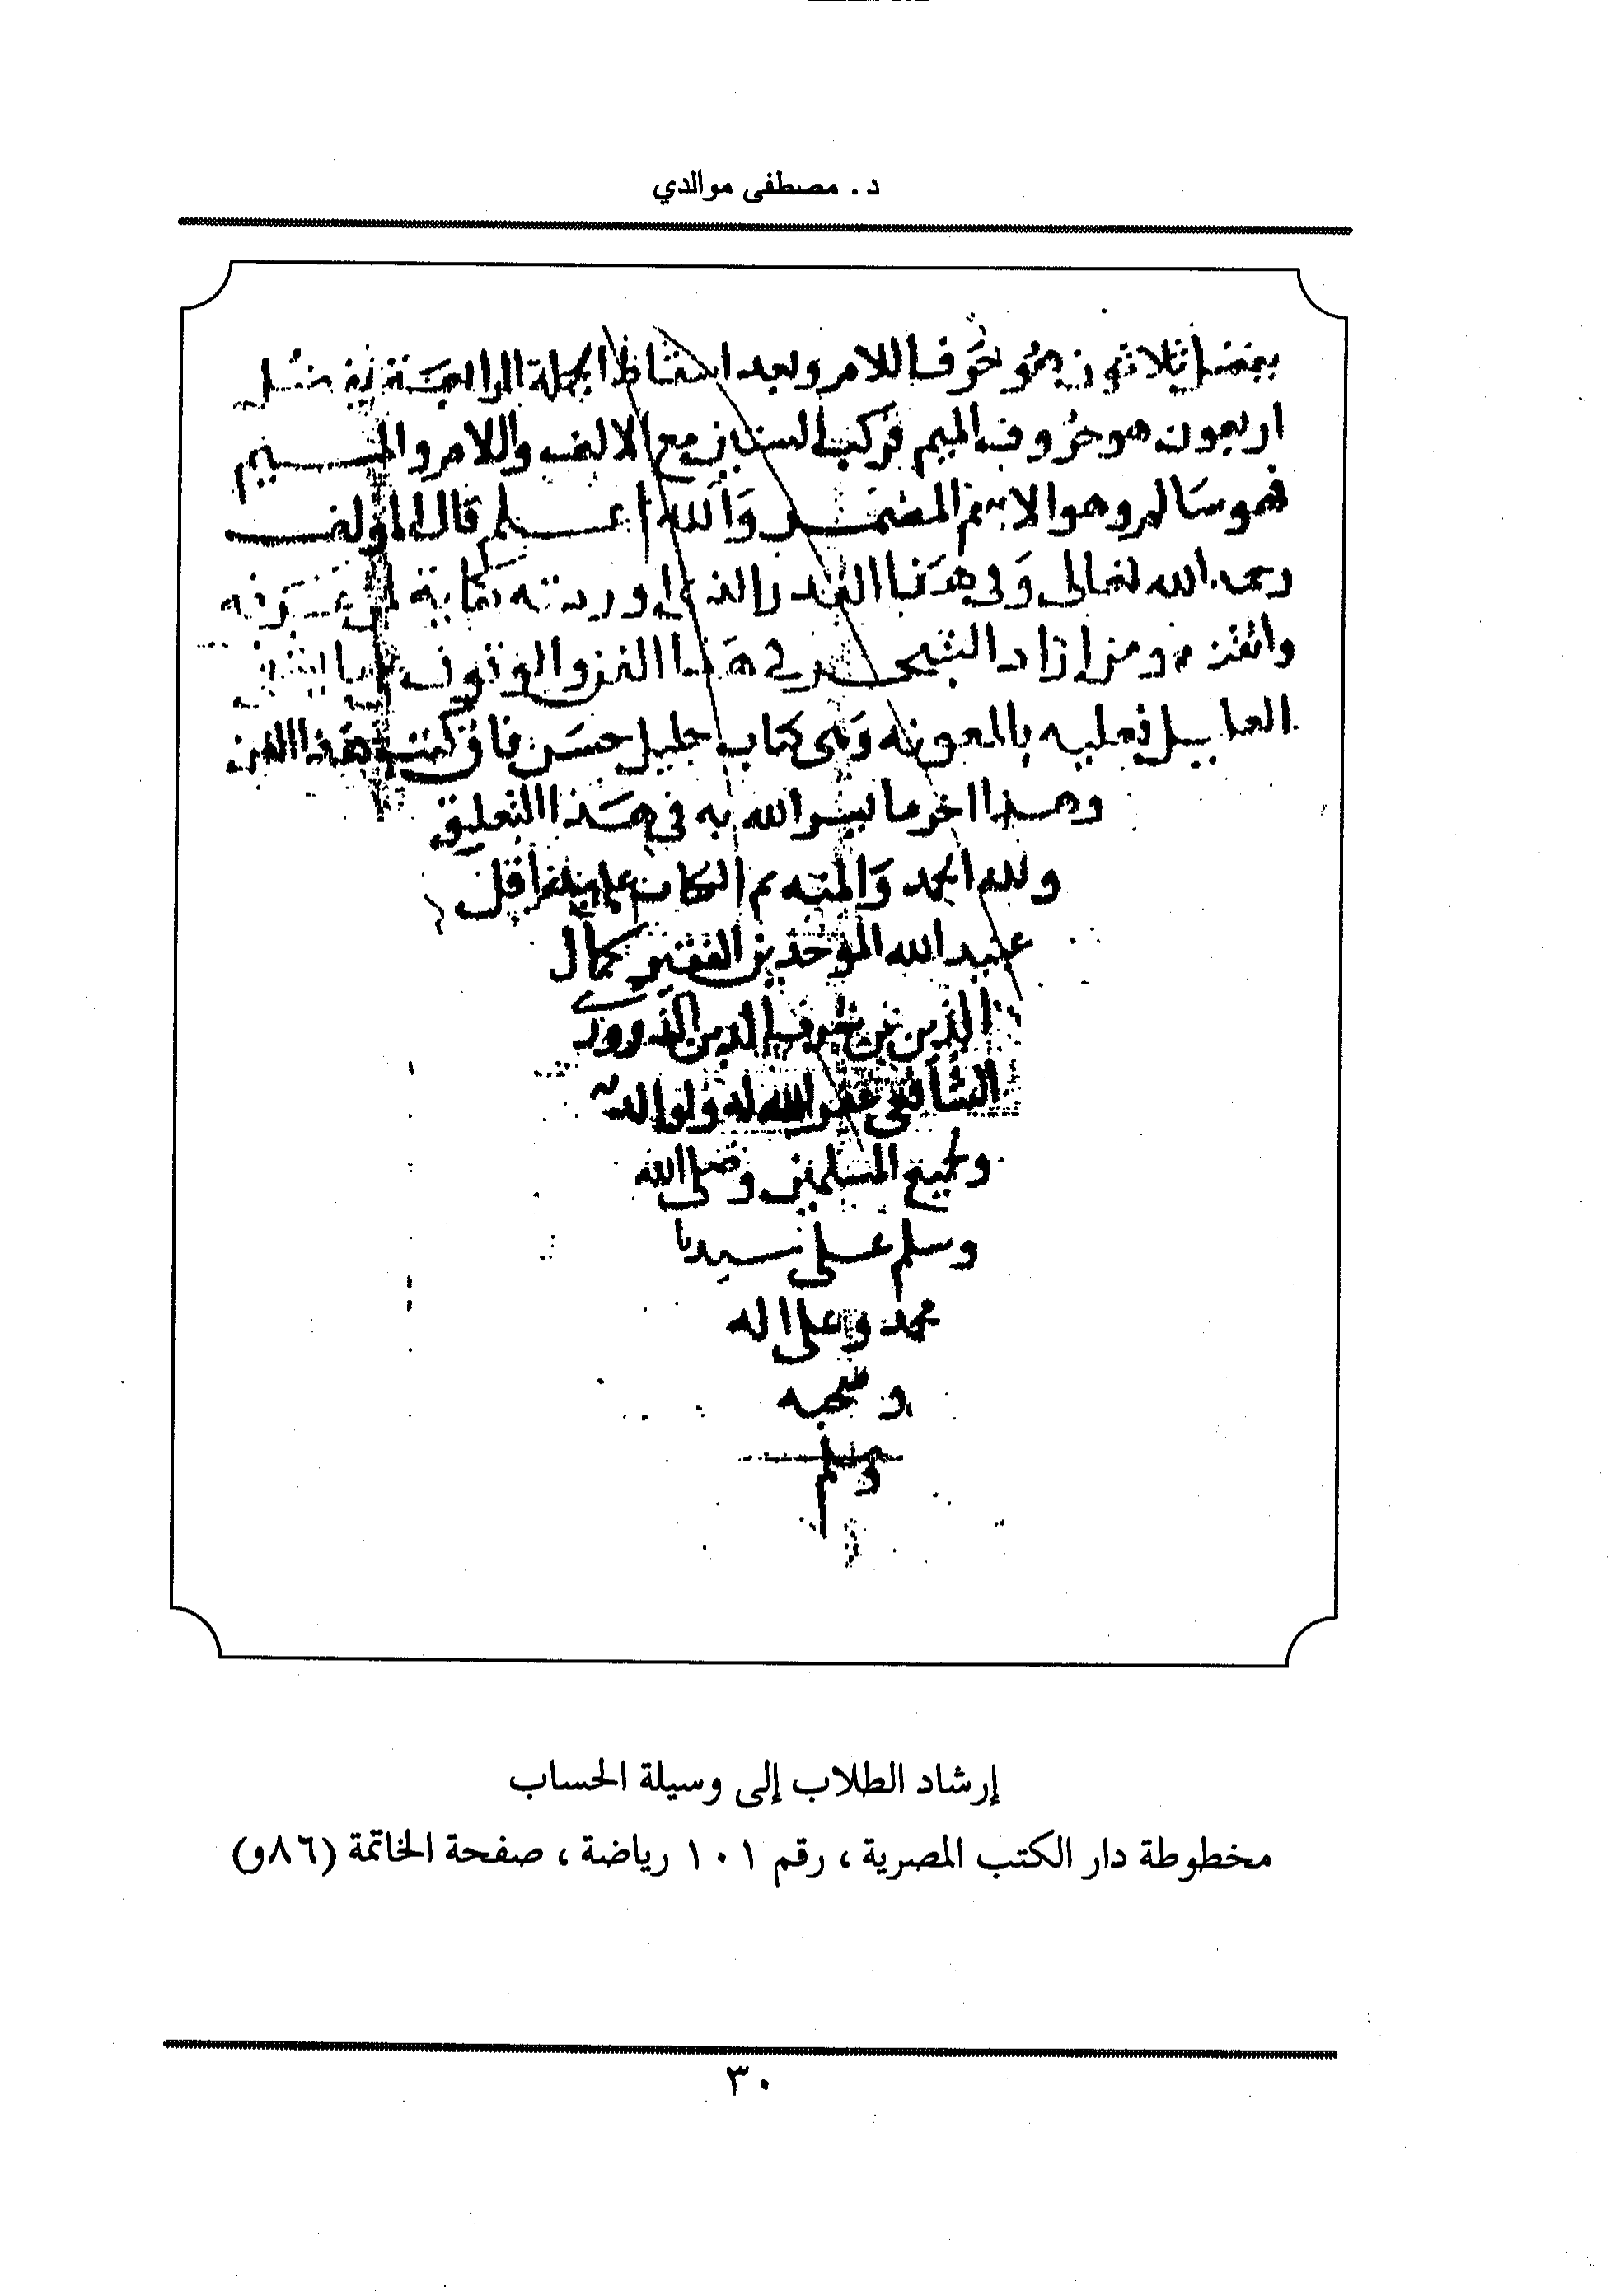 د. مصطفى موالدي
يفضل ثلاثون هو حرف اللام وبعد اسقاط الجملة الرابعة يفضل
اربعون هو حروف الميم فركب السين مع الالف واللام والميم
فهو سالم وهو الاسم المضمر والله اعلم قال المولف
رحمه الله تعالى وفي هذا القدر الذي اوردته كفاية لمن عرفه
واتقنه ومن اراد التبحر في هذا الفن والوقوف على
العليل فعليه بالمعونة وهي كتاب جليل حسن فاق كتب هذا الفن
وهذا اخر ما يسر الله به في هذا التعليق
ولله الحمد والمنه تم الكتاب اقل
عبيد الله الموحدين الفقير كمال
الدين بن شرف الدين
الشافعي غفر الله له ولوالديه
ولجميع المسلمين وصلى الله
وسلم على سيدنا
محمد وعلى اله
وصحبه
وسلم
إرشاد الطلاب إلى وسيلة الحساب
مخطوطة دار الكتب المصرية، رقم ١٠١ رياضة، صفحة الخاتمة (٨٦و)
٣٠